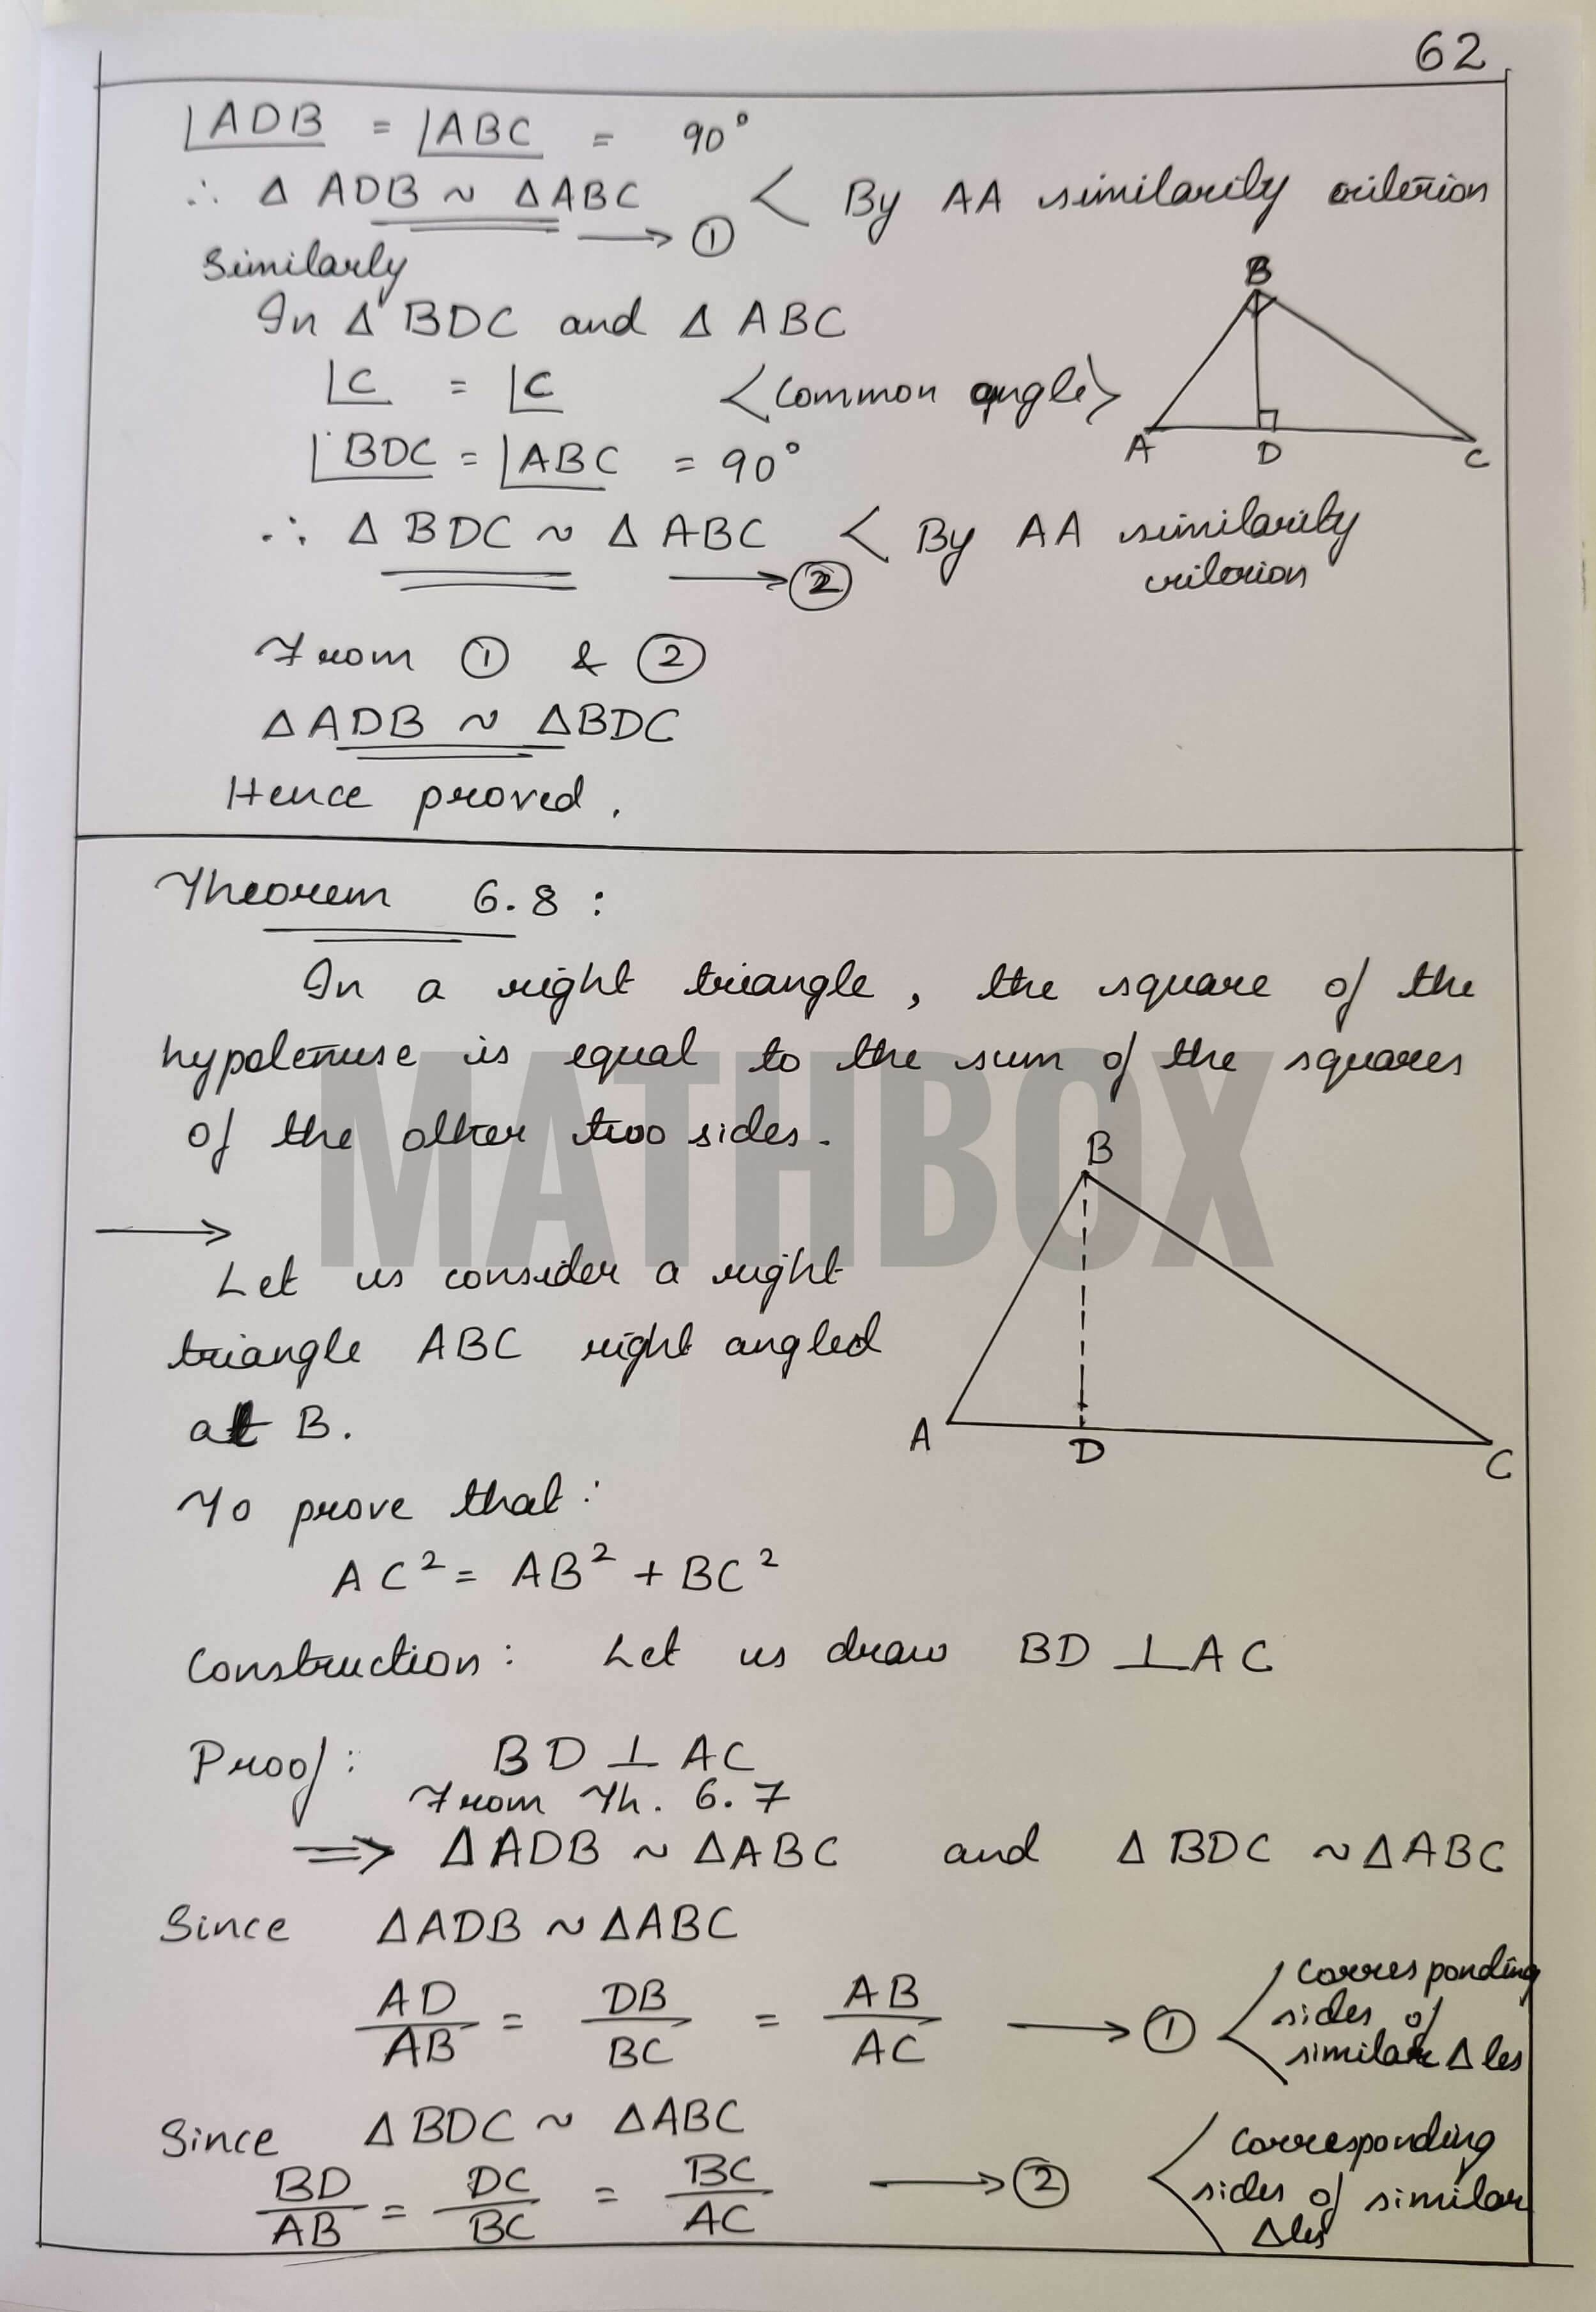 62
∠ADB = ∠ABC = 90°
∴ Δ ADB ~ ΔABC → ① < By AA similarity criterion
Similarly
In Δ BDC and Δ ABC
∠C = ∠C <Common angle>
∠BDC = ∠ABC = 90°
∴ Δ BDC ~ Δ ABC → ② < By AA similarity
criterion
B
A D C
From ① & ②
ΔADB ~ ΔBDC
Hence proved.
Theorem 6.8 :
In a right triangle, the square of the
hypotenuse is equal to the sum of the squares
of the other two sides.
MATHBOX
→
Let us consider a right
triangle ABC right angled
at B.
B
A D C
To prove that:
AC² = AB² + BC²
Construction: Let us draw BD ⊥ AC
Proof: BD ⊥ AC
From Th. 6.7
⇒ ΔADB ~ ΔABC and Δ BDC ~ ΔABC
Since ΔADB ~ ΔABC
AD/AB = DB/BC = AB/AC → ① < corresponding
sides of
similar Δles
Since Δ BDC ~ ΔABC
BD/AB = DC/BC = BC/AC → ② < corresponding
sides of similar
Δles